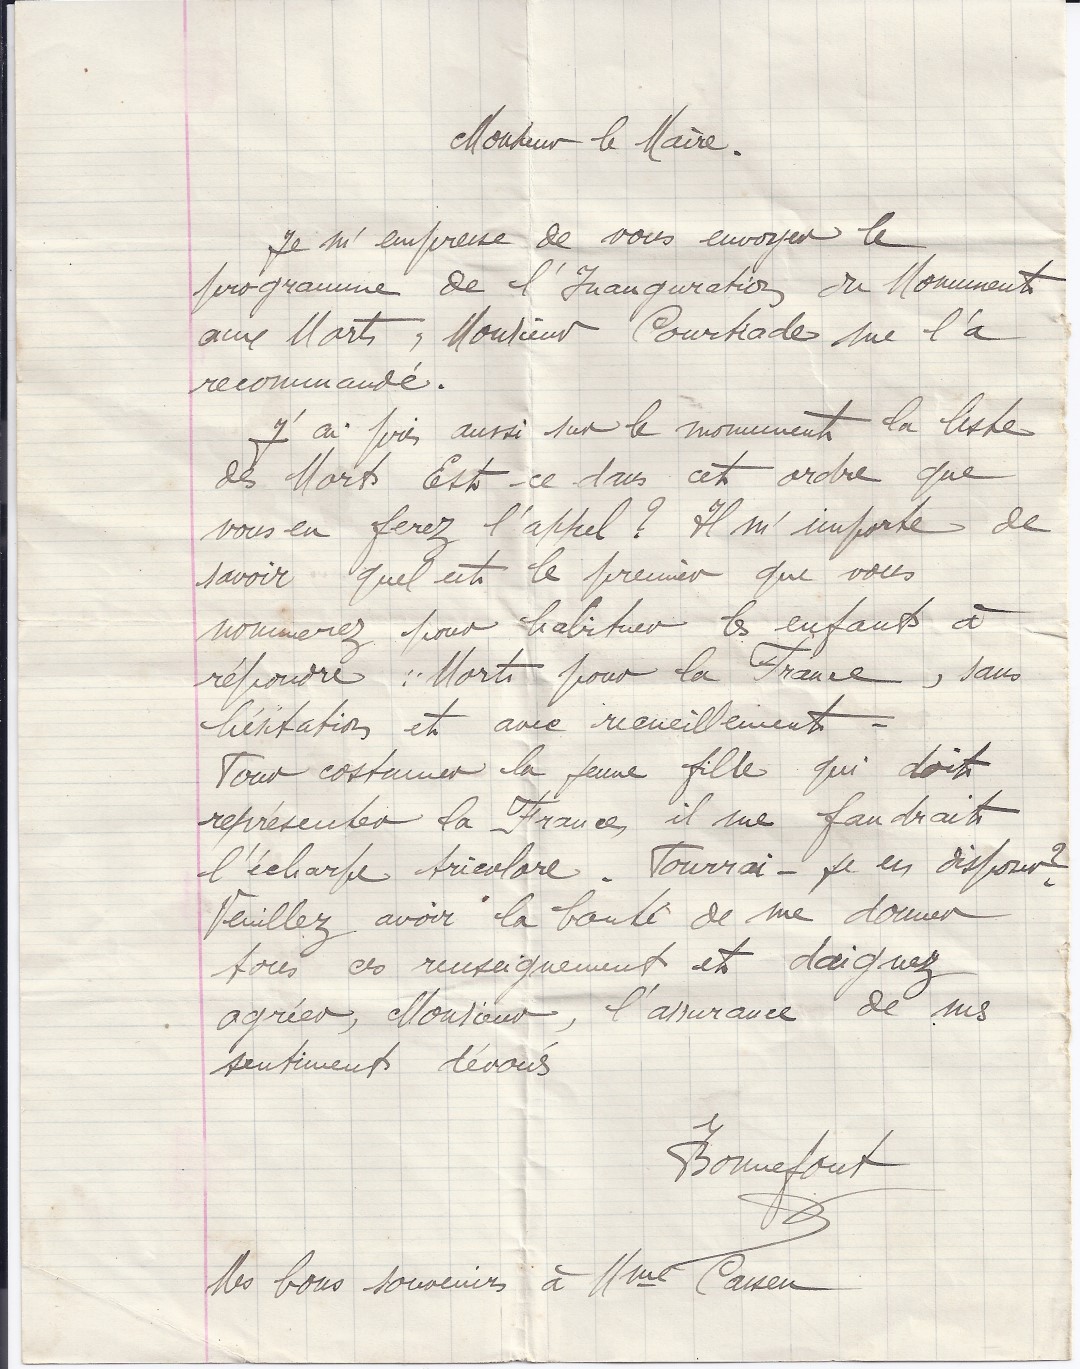 Monsieur le Maire.
Je m'empresse de vous envoyer le
programme de l'Inauguration du Monument
aux Morts, Monsieur Courtiade me l'a
recommandé.
J'ai pris aussi sur le monument la liste
des Morts Est-ce dans cet ordre que
vous en ferez l'appel ? Il m'importe de
savoir quel est le premier que vous
nommerez pour habituer les enfants à
répondre : Morts pour la France, sans
hésitation et avec recueillement -
Pour costumer la jeune fille qui doit
représenter la France, il me faudrait
l'écharpe tricolore. Pourrai-je en disposer ?
Veuillez avoir la bonté de me donner
tous ces renseignements et daignez
agréer, Monsieur, l'assurance de mes
sentiments dévoués
Bonnefont
Mes bons souvenirs à Mme